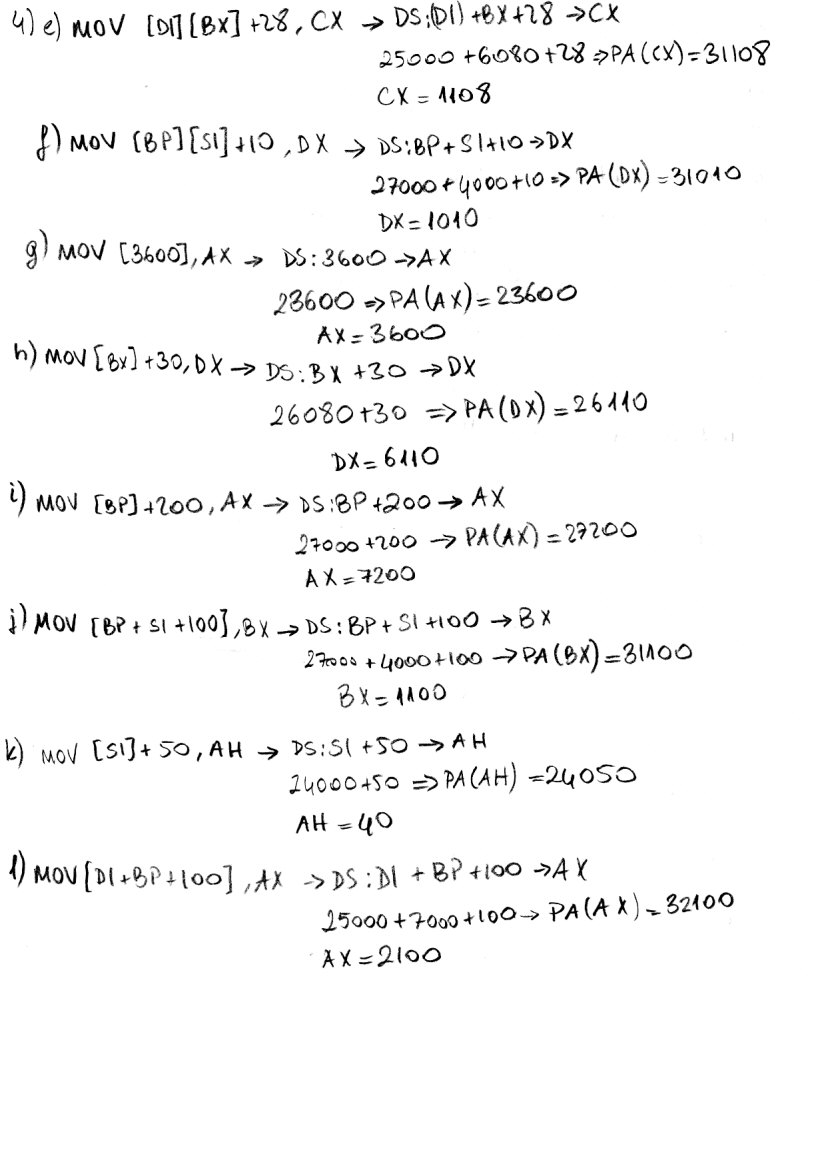 4) e) MOV [DI][BX]+28, CX → DS:(DI)+BX+28 → CX
25000+6080+28 ⇒ PA(CX)=31108
CX = 1108
f) MOV [BP][SI]+10, DX → DS:BP+SI+10→DX
27000+4000+10 ⇒ PA(DX)=31010
DX=1010
g) MOV [3600], AX → DS:3600→AX
23600 ⇒ PA(AX)=23600
AX=3600
h) MOV [BX]+30, DX → DS:BX+30 → DX
26080+30 ⇒ PA(DX)=26110
DX=6110
i) MOV [BP]+200, AX → DS:BP+200 → AX
27000+200 → PA(AX)=27200
AX=7200
j) MOV [BP+SI+100], BX → DS:BP+SI+100 → BX
27000+4000+100 → PA(BX)=31100
BX=1100
k) MOV [SI]+50, AH → DS:SI+50 → AH
24000+50 ⇒ PA(AH)=24050
AH=40
l) MOV [DI+BP+100], AX → DS:DI+BP+100 → AX
25000+7000+100→ PA(AX)=32100
AX=2100